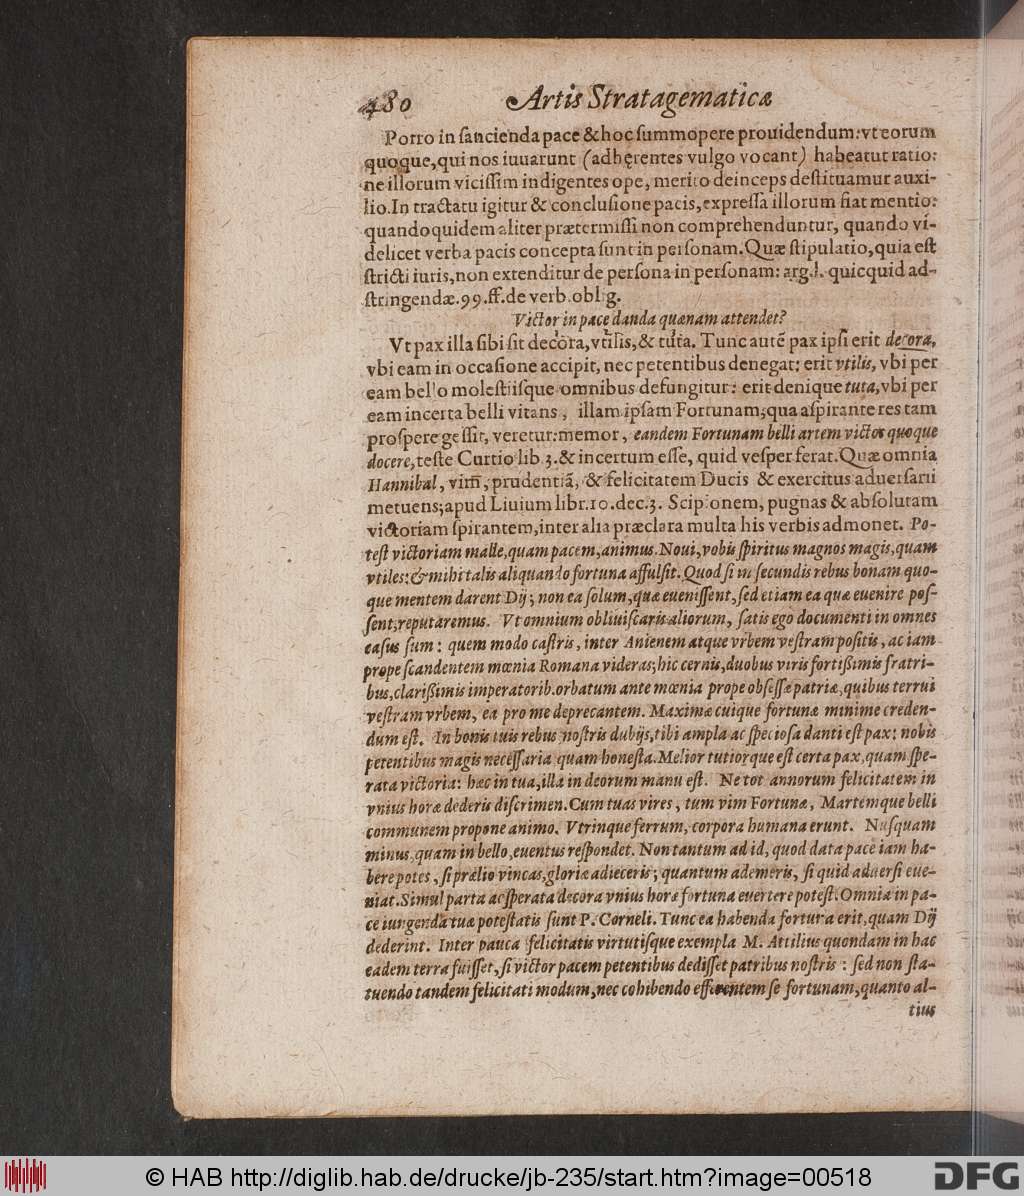 480 Artis Stratagematicæ
Porro in ſancienda pace & hoc ſummopere prouidendum: vt eorum
quoque, qui nos iuuarunt (adhęrentes vulgo vocant) habeatur ratio:
ne illorum viciſſim indigentes ope, merito deinceps deſtituamur auxi-
lio. In tractatu igitur & concluſione pacis, expreſſa illorum fiat mentio:
quandoquidem aliter prætermiſſi non comprehenduntur, quando vi-
delicet verba pacis concepta ſunt in perſonam. Quæ ſtipulatio, quia eſt
ſtricti iuris, non extenditur de perſona in perſonam: arg. l. quicquid ad-
ſtringendæ. 99. ff. de verb. oblig.
Victor in pace danda quænam attendet?
Vt pax illa ſibi ſit decora, vtilis, & tuta. Tunc autē pax ipſi erit decora,
vbi eam in occaſione accipit, nec petentibus denegat: erit vtilis, vbi per
eam bello moleſtiiſque omnibus defungitur: erit denique tuta, vbi per
eam incerta belli vitans, illam ipſam Fortunam, qua aſpirante res tam
proſpere geſſit, veretur: memor, eandem Fortunam belli artem victos quoque
docere, teſte Curtio lib 3. & incertum eſſe, quid veſper ferat. Quæ omnia
Hannibal, vim̄, prudentiā, & felicitatem Ducis & exercitus aduerſarii
metuens; apud Liuium libr. 10. dec. 3. Scipionem, pugnas & abſolutam
victoriam ſpirantem, inter alia præclara multa his verbis admonet. Po-
teſt victoriam malle, quam pacem, animus. Noui, vobis ſpiritus magnos magis, quam
vtiles: & mihi talis aliquando fortuna affulſit. Quod ſi in ſecundis rebus bonam quo-
que mentem darent Dij; non ea ſolum, quæ eueniſſent, ſed etiam ea quæ euenire poſ-
ſent, reputaremus. Vt omnium obliuiſcaris aliorum, ſatis ego documenti in omnes
caſus ſum: quem modo caſtris, inter Anienem atque vrbem veſtram poſitis, ac iam
prope ſcandentem mœnia Romana videras; hic cernis, duobus viris fortißimis fratri-
bus, clarißimis imperatorib. orbatum ante mœnia prope obſeſſæ patriæ, quibus terrui
veſtram vrbem, ea pro me deprecantem. Maximæ cuique fortunæ minime creden-
dum eſt. In bonis tuis rebus noſtris dubijs, tibi ampla ac ſpecioſa danti eſt pax: nobis
petentibus magis neceſſaria quam honeſta. Melior tutiorque eſt certa pax, quam ſpe-
rata victoria: hæc in tua, illa in deorum manu eſt. Ne tot annorum felicitatem in
vnius horæ dederis diſcrimen. Cum tuas vires, tum vim Fortunæ, Martemque belli
communem propone animo. Vtrinque ferrum, corpora humana erunt. Nuſquam
minus, quam in bello, euentus reſpondet. Non tantum ad id, quod data pace iam ha-
bere potes, ſi prælio vincas, gloriæ adieceris; quantum ademeris, ſi quid aduerſi eue-
niat. Simul parta ac ſperata decora vnius horæ fortuna euertere poteſt. Omnia in pa-
ce iungenda tuæ poteſtatis ſunt P. Corneli. Tunc ea habenda fortuna erit, quam Dij
dederint. Inter pauca felicitatis virtutiſque exempla M. Attilius quondam in hac
eadem terra fuiſſet, ſi victor pacem petentibus dediſſet patribus noſtris: ſed non ſta-
tuendo tandem felicitati modum, nec cohibendo efferentem ſe fortunam, quanto al-
tius
© HAB http://diglib.hab.de/drucke/jb-235/start.htm?image=00518
DFG
digilib